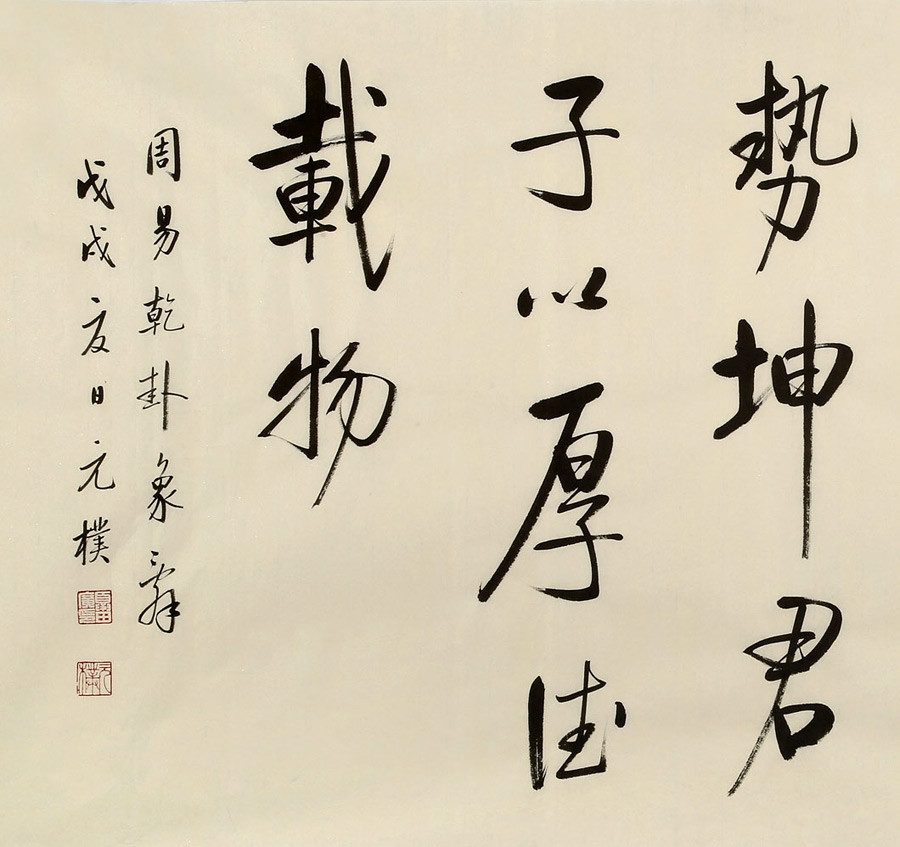 勢坤君
子以厚德
載物
周易乾卦象辭
戊戌夏日元樸